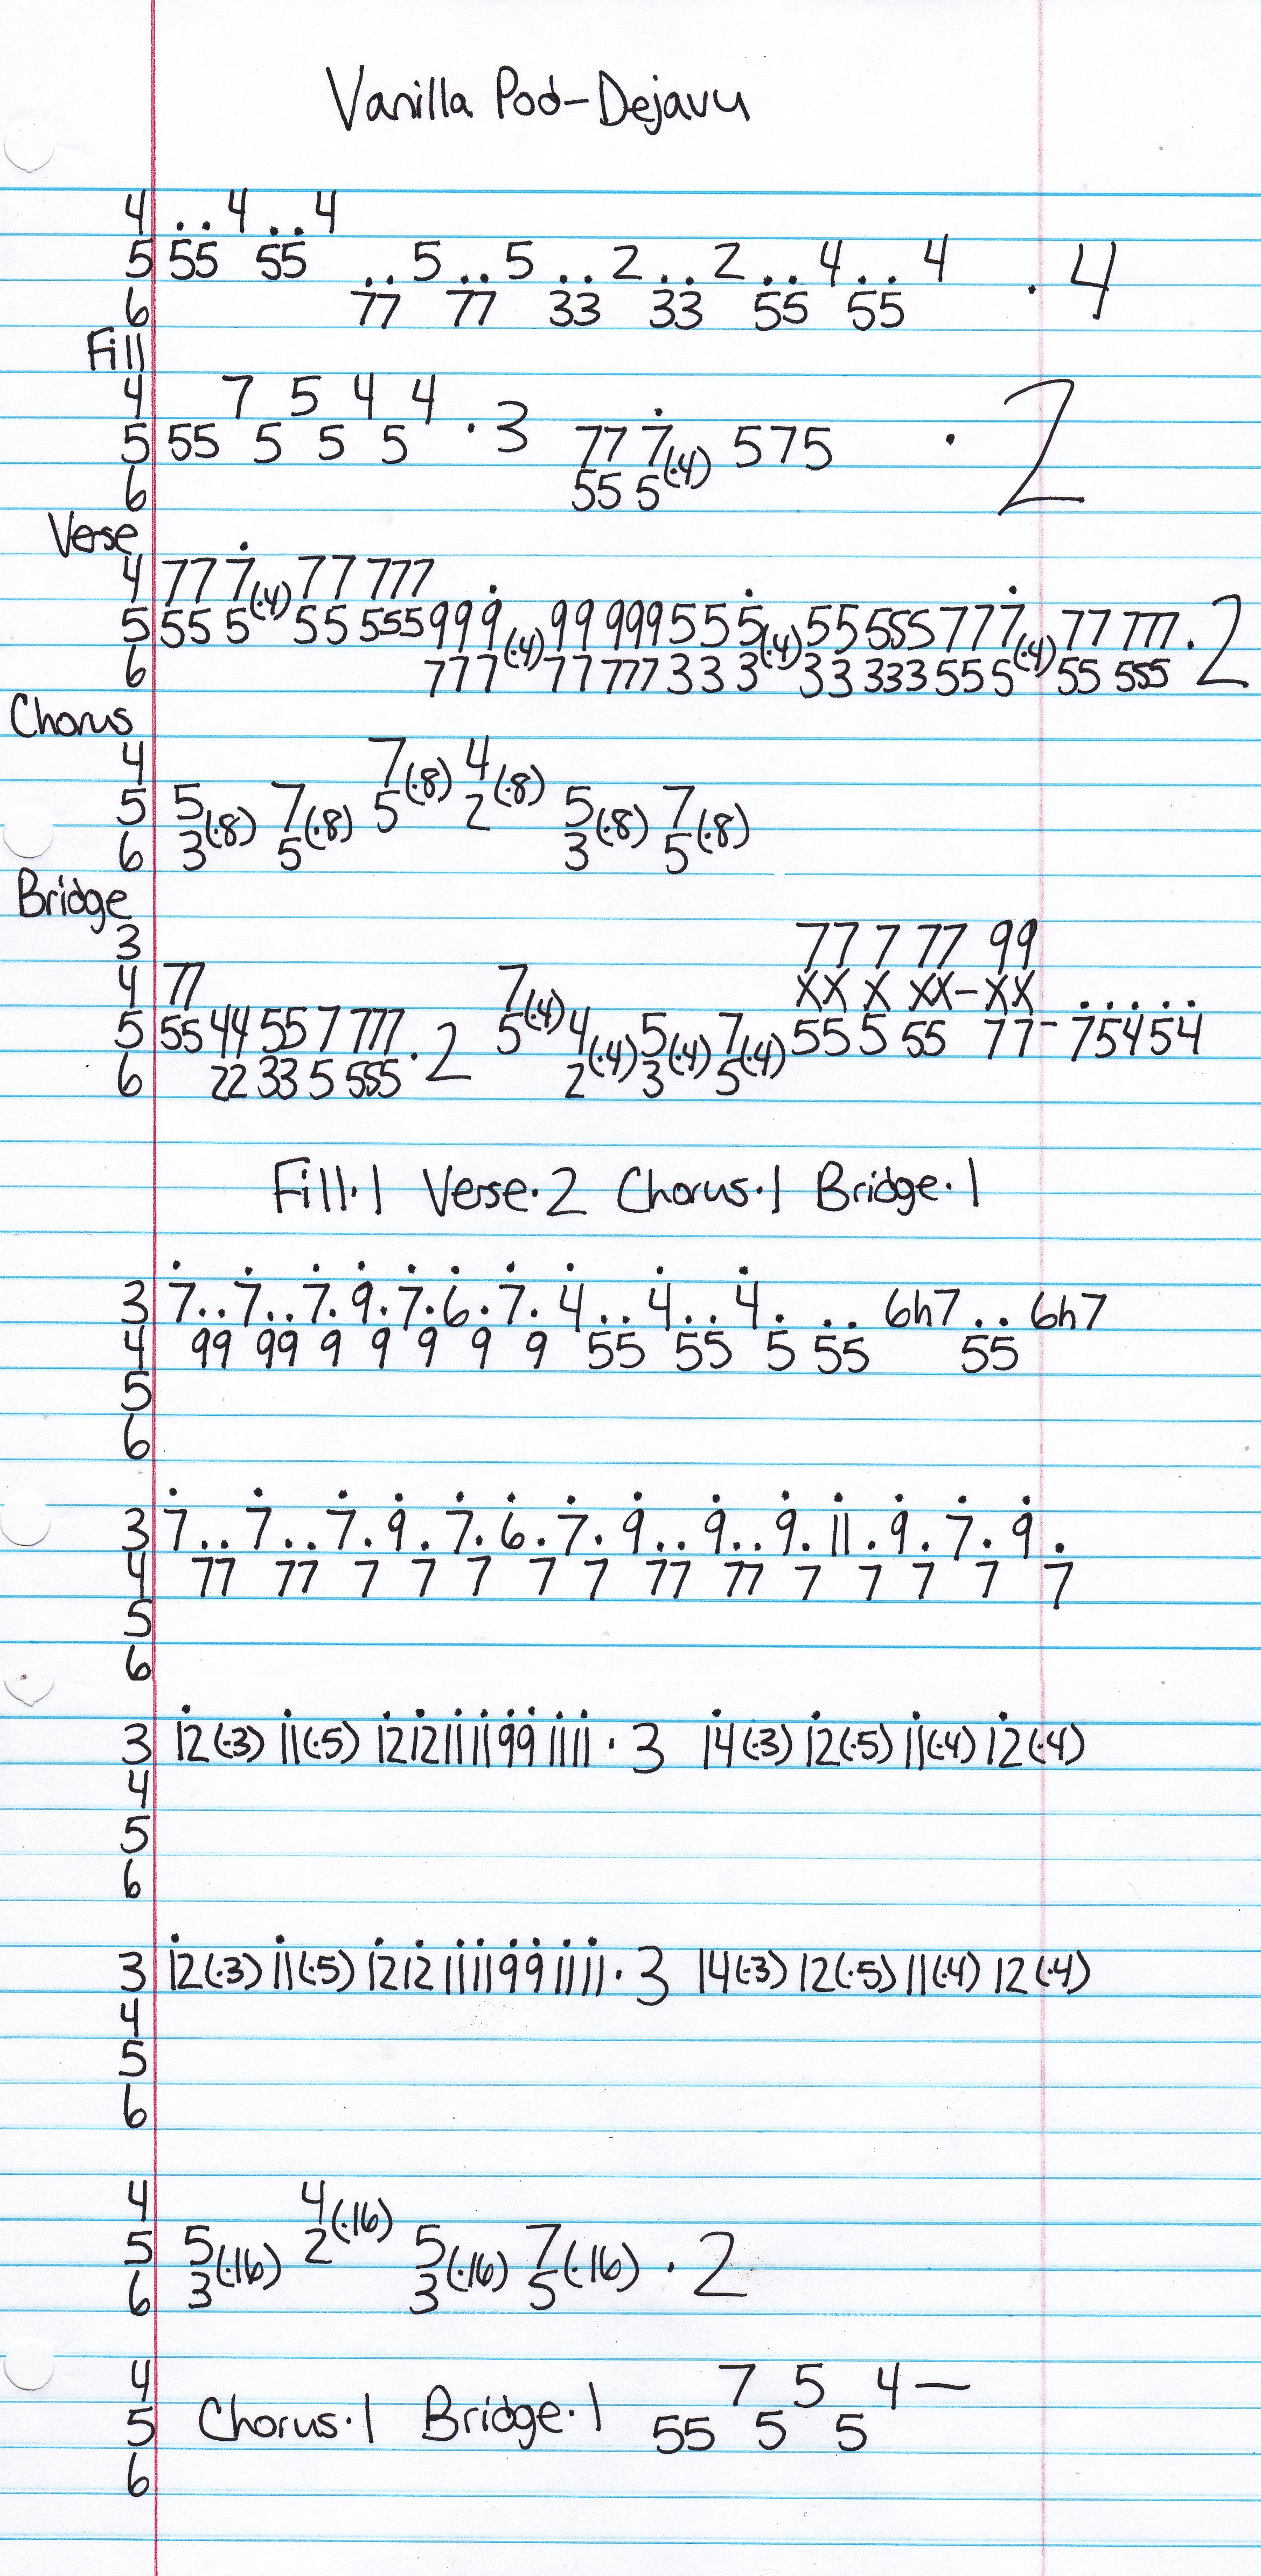 Vanilla Pod-Dejavu
4 . . 4 . . 4
5 55 55 . . 5 . . 5 . . 2 . . 2 . . 4 . . 4 · 4
6 77 77 33 33 55 55
Fill
4 7 5 4 4
5 55 5 5 5 · 3 77 7(·4) 575 · 2
6 55 5
Verse
4 77 7(·4) 77 777
5 55 5 55 555 999(·4) 99 999 555(·4) 55 555 777(·4) 77 777 · 2
6 777 77 777 333 33 333 555 55 555
Chorus
4 7(·8) 4(·8)
5 5(·8) 7(·8) 5 2 5(·8) 7(·8)
6 3 5 3 5
Bridge
3 77 7 77 99
4 77 7(·4) XX X XX-XX
5 55 44 55 7 777 · 2 5 4(·4) 5(·4) 7(·4) 55 5 55 77- 75454
6 22 33 5 555 2 3 5
Fill·1 Verse·2 Chorus·1 Bridge·1
3 7 . . 7 . . 7 . 9 . 7 . 6 . 7 . 4 . . 4 . . 4 . . . 6h7 . . 6h7
4 99 99 9 9 9 9 9 55 55 5 55 55
5
6
3 7 . . 7 . . 7 . 9 . 7 . 6 . 7 . 9 . . 9 . . 9 . 11 . 9 . 7 . 9 .
4 77 77 7 7 7 7 7 77 77 7 7 7 7 7
5
6
3 12(·3) 11(·5) 12121111991111 · 3 14(·3) 12(·5) 11(·4) 12(·4)
4
5
6
3 12(·3) 11(·5) 12121111991111 · 3 14(·3) 12(·5) 11(·4) 12(·4)
4
5
6
4 4(·16)
5 5(·16) 2 5(·16) 7(·16) · 2
6 3 3 5
4 7 5 4—
5 Chorus·1 Bridge·1 55 5 5
6